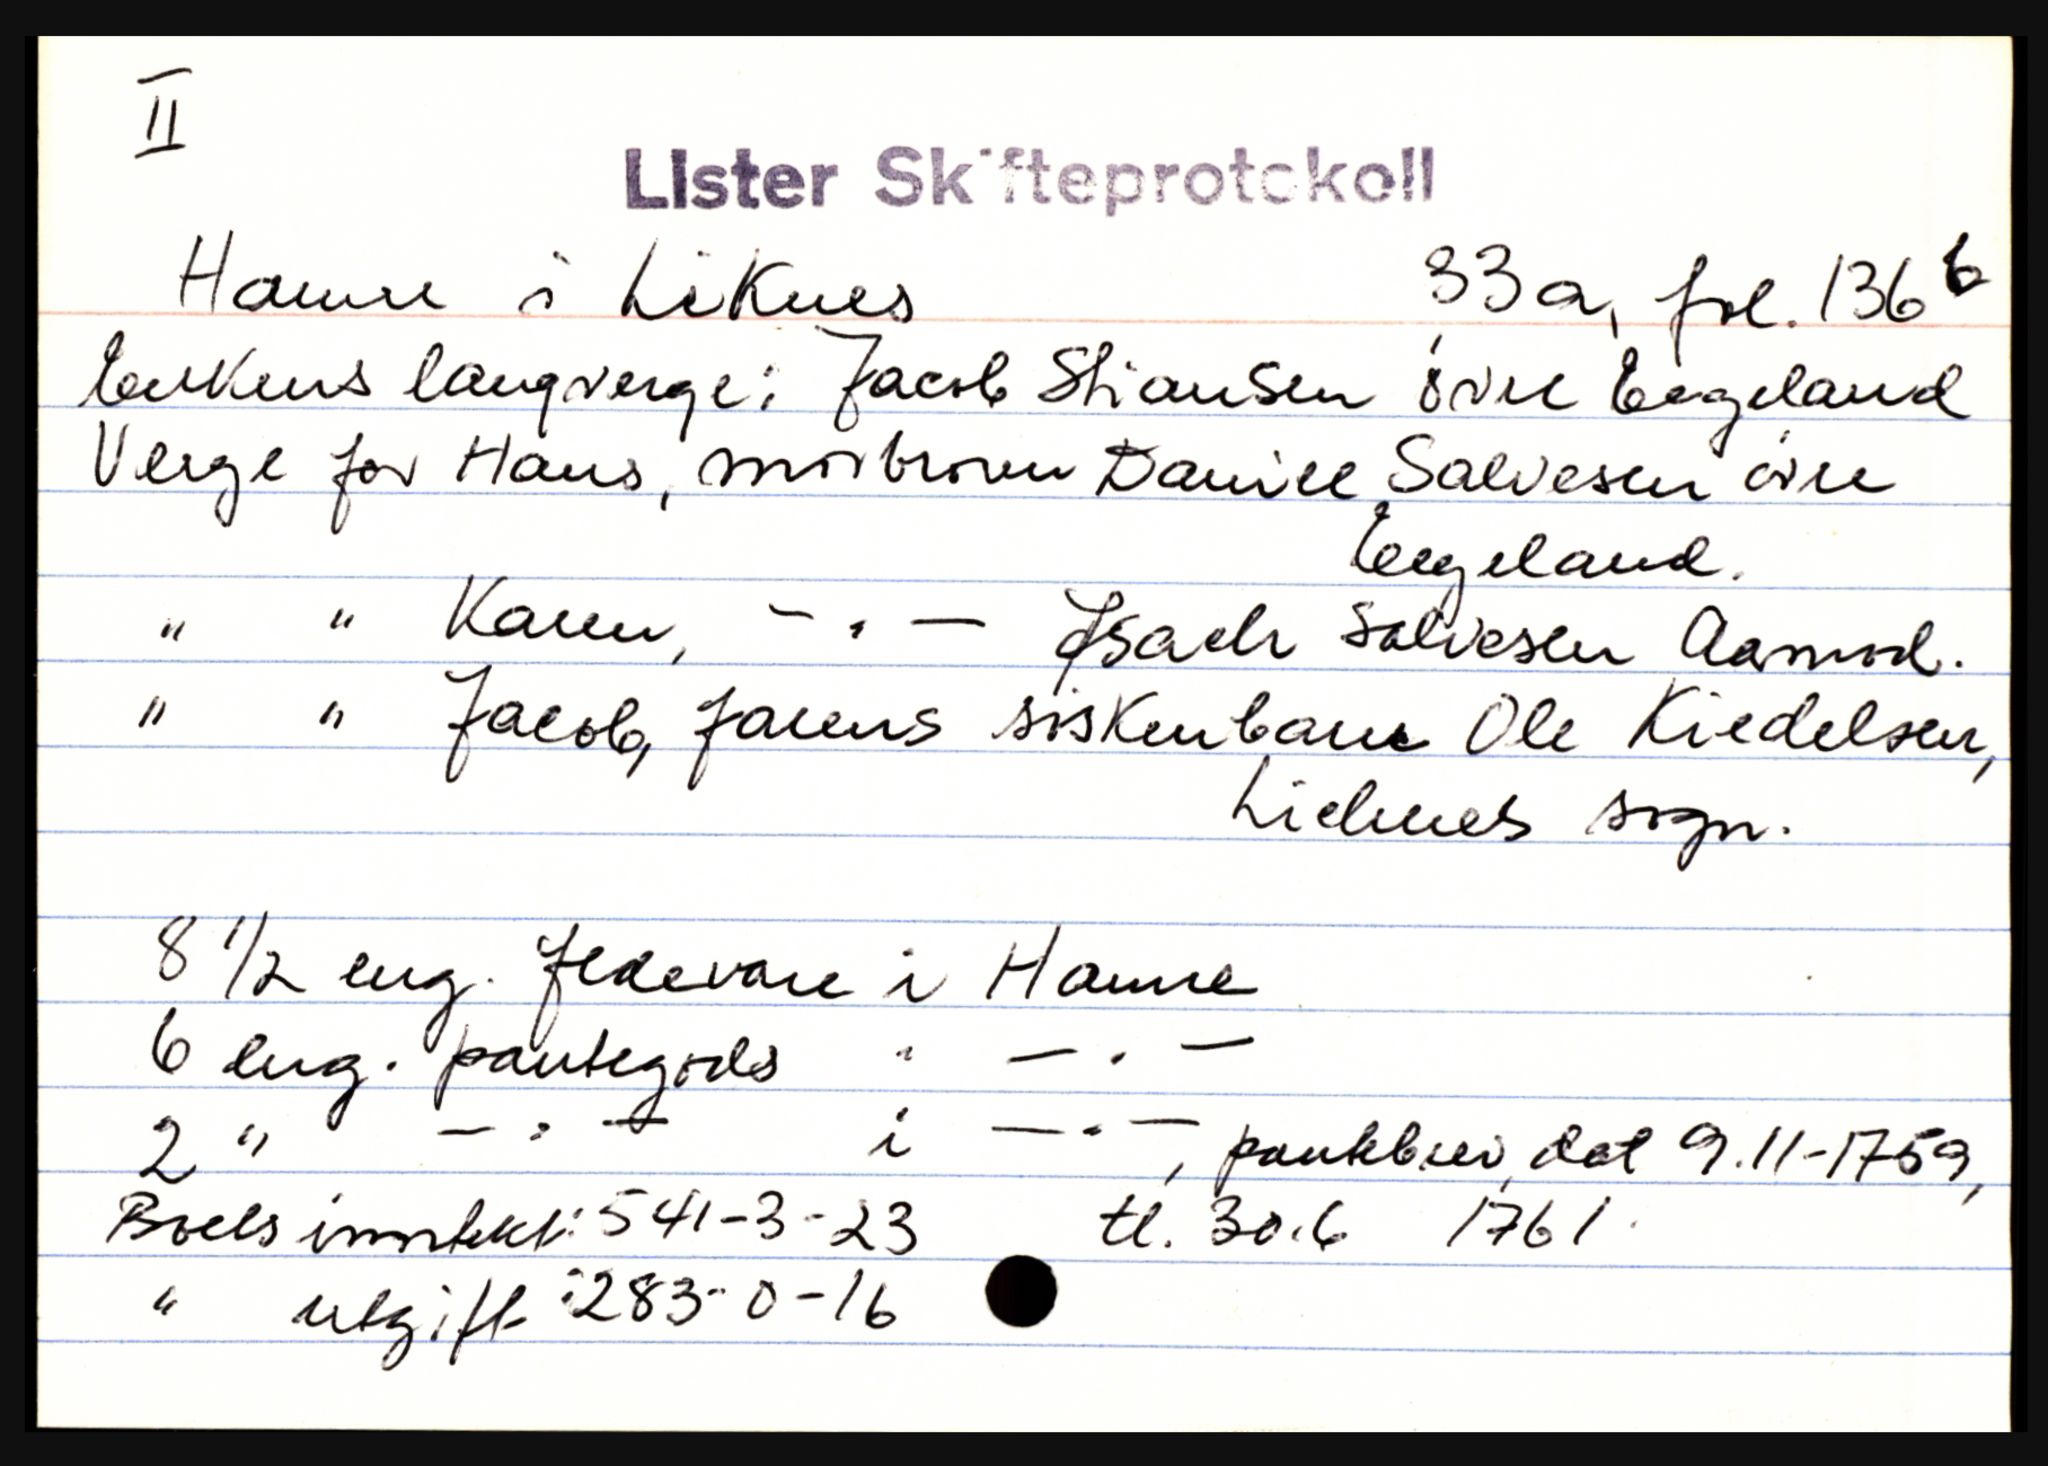 II
Lister Skifteprotokoll
Hamre i Liknes 33a, fol. 136 b
Enkens laugverge: Jacob Stiansen övre Eegeland
Verge for Hans, morbroren Daniel Salvesen övre
Eegeland.
" " Karen, - " - Isach Salvesen Aamod.
" " Jacob, farens söskenbarn Ole Kiedelsen,
Lichnes sogn.
8 1/2 eng. fedevare i Hamre
6 eng. pantegods i - " -
2 " - " - i - " -, pantebrev dat 9.11-1759,
Boets inntekt: 541-3-23 tl. 30.6 1761.
" utgift: 283-0-16